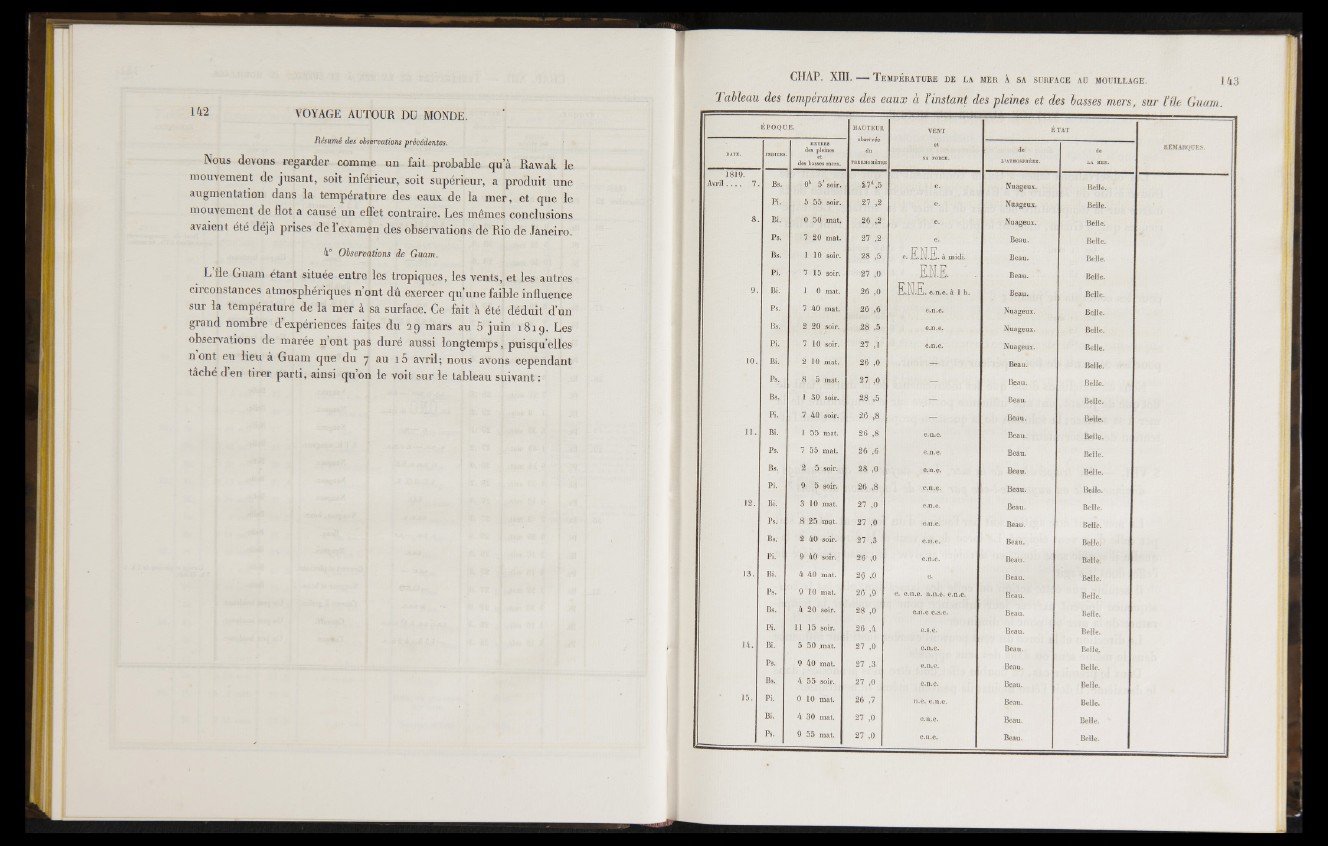 142 VOYAGE AUTOUR DU MONDE.
Résumé des observations précédentes.
Nous devons regarder comme un fait probable qu'à Rawak le
mouvement de jusant, soit inférieur, soit supérieur, a produit une
augmentation dans la température des eaux de la mer, et que le
mouvement de flot a causé un effet contraire. Les mêmes conclusions
avaient été déjà prises de l'examen des observations de Rio de Janeiro.
4° Observations de Guam.
L'île Guam étant située entre les tropiques, les vents, et les autres
circonstances atmosphériques n'ont dû exercer qu'une faible influence
sur la température de la mer à sa surface. Ce fait a été déduit d'un
grand nombre d'expériences faites du 29 mars au 5 juin 1819. Les
observations de marée n'ont pas duré aussi longtemps, puisqu'elles
n'ont eu lieu à Guam que du 7 au 15 avril; nous avons cependant
tâché d'en tirer parti, ainsi qu'on le voit sur le tableau suivant :
CHAP. XIII. — TEMPÉRATURE DE LA MER À SA SURFACE AU MOUILLAGE. 143
Tableau des températures des eaux à l'instant des pleines et des basses mers, sur l'île Guam.
ÉPOQUE. HAUTEUR observée du THERMOMÈTRE VENT et SA FORCE. ÉTAT REMARQUES.
DATE. INDICES. HEURES des pleines et des basses mers. de L'ATMOSPHÈRE. de LA MER.
1819.
Avril.... 7. Bs. 0h 5' soir. 27d,5 e. Nuageux. Belle.
Pi. 5 55 soir. 27 ,2 e. Nuageux. Belle.
8. Bi. 0 50 mat. 26 ,2 e. Nuageux. Belle.
Ps. 7 20 mat. 27 ,2 e. Beau. Belle.
Bs. 1 10 soir. 28 ,5 e. E.N.E. à midi. Beau. Belle.
Pi. 7 15 soir. 27 ,0 E.N.E. Beau. Belle.
9. Bi. 1 0 mat. 26 ,0 E.N.E. e.n.e. à 1 h. Beau. Belle.
Ps. 7 40 mat. 26 ,6 e.n.e. Nuageux. Belle.
Bs. 2 20 soir. 28 ,5 e.n.e. Nuageux. Belle.
Pi. 7 10 soir. 27 ,1 e.n.e. Nuageux. Belle.
10. Bi. 2 10 mat. 26 ,0 — Beau. Belle.
Ps. 8 5 mat. 27 ,0 — Beau. Belle.
Bs. 1 30 soir. 28 ,5 — Beau. Belle.
Pi. 7 40 soir. 26 ,8 — Beau. Belle.
11. Bi. 1 55 mat. 26 ,8 e.n.e. Beau. Belle.
Ps. 7 55 mat. 26 ,6 e.n.e. Beau. Belle.
Bs. 2 5 soir. 28 ,0 e.n.e. Beau. Belle.
Pi. 9 5 soir. 26 ,8 e.n.e. Beau. Belle.
12. Bi. 3 10 mat. 27 ,0 e.n.e. Beau. Belle.
Ps. 8 25 mat. 27 ,0 e.n.e. Beau. Belle.
Bs. 2 40 soir. 27 ,3 e.n.e. Beau. Belle.
Pi. 9 40 soir. 26 ,0 e.n.e. Beau. Belle.
13. Bi. 4 40 mat. 26 ,0 e. Beau. Belle.
Ps. 9 10 mat. 26 ,9 e. e.n.e. n.n.e. e.n.e. Beau. Belle.
Bs. 4 20 soir. 28 ,0 e.n.e e.s.e. Beau. Belle.
Pi. 11 15 soir. 26 ,4 e.s.e. Beau. Belle.
14. Bi. 5 50 mat. 27 ,0 e.n.e. Beau. Belle.
Ps. 9 40 mat. 27 ,3 e.n.e. Beau. Belle.
Bs. 4 55 soir. 27 ,0 e.n.e. Beau. Belle.
15. Pi. 0 10 mat. 26 ,7 n.e. e.n.e. Beau. Belle.
Bi. 4 30 mat. 27 ,0 e.n.e. Beau. Belle.
Ps. 9 55 mat. 27 ,0 e.n.e. Beau. Belle.